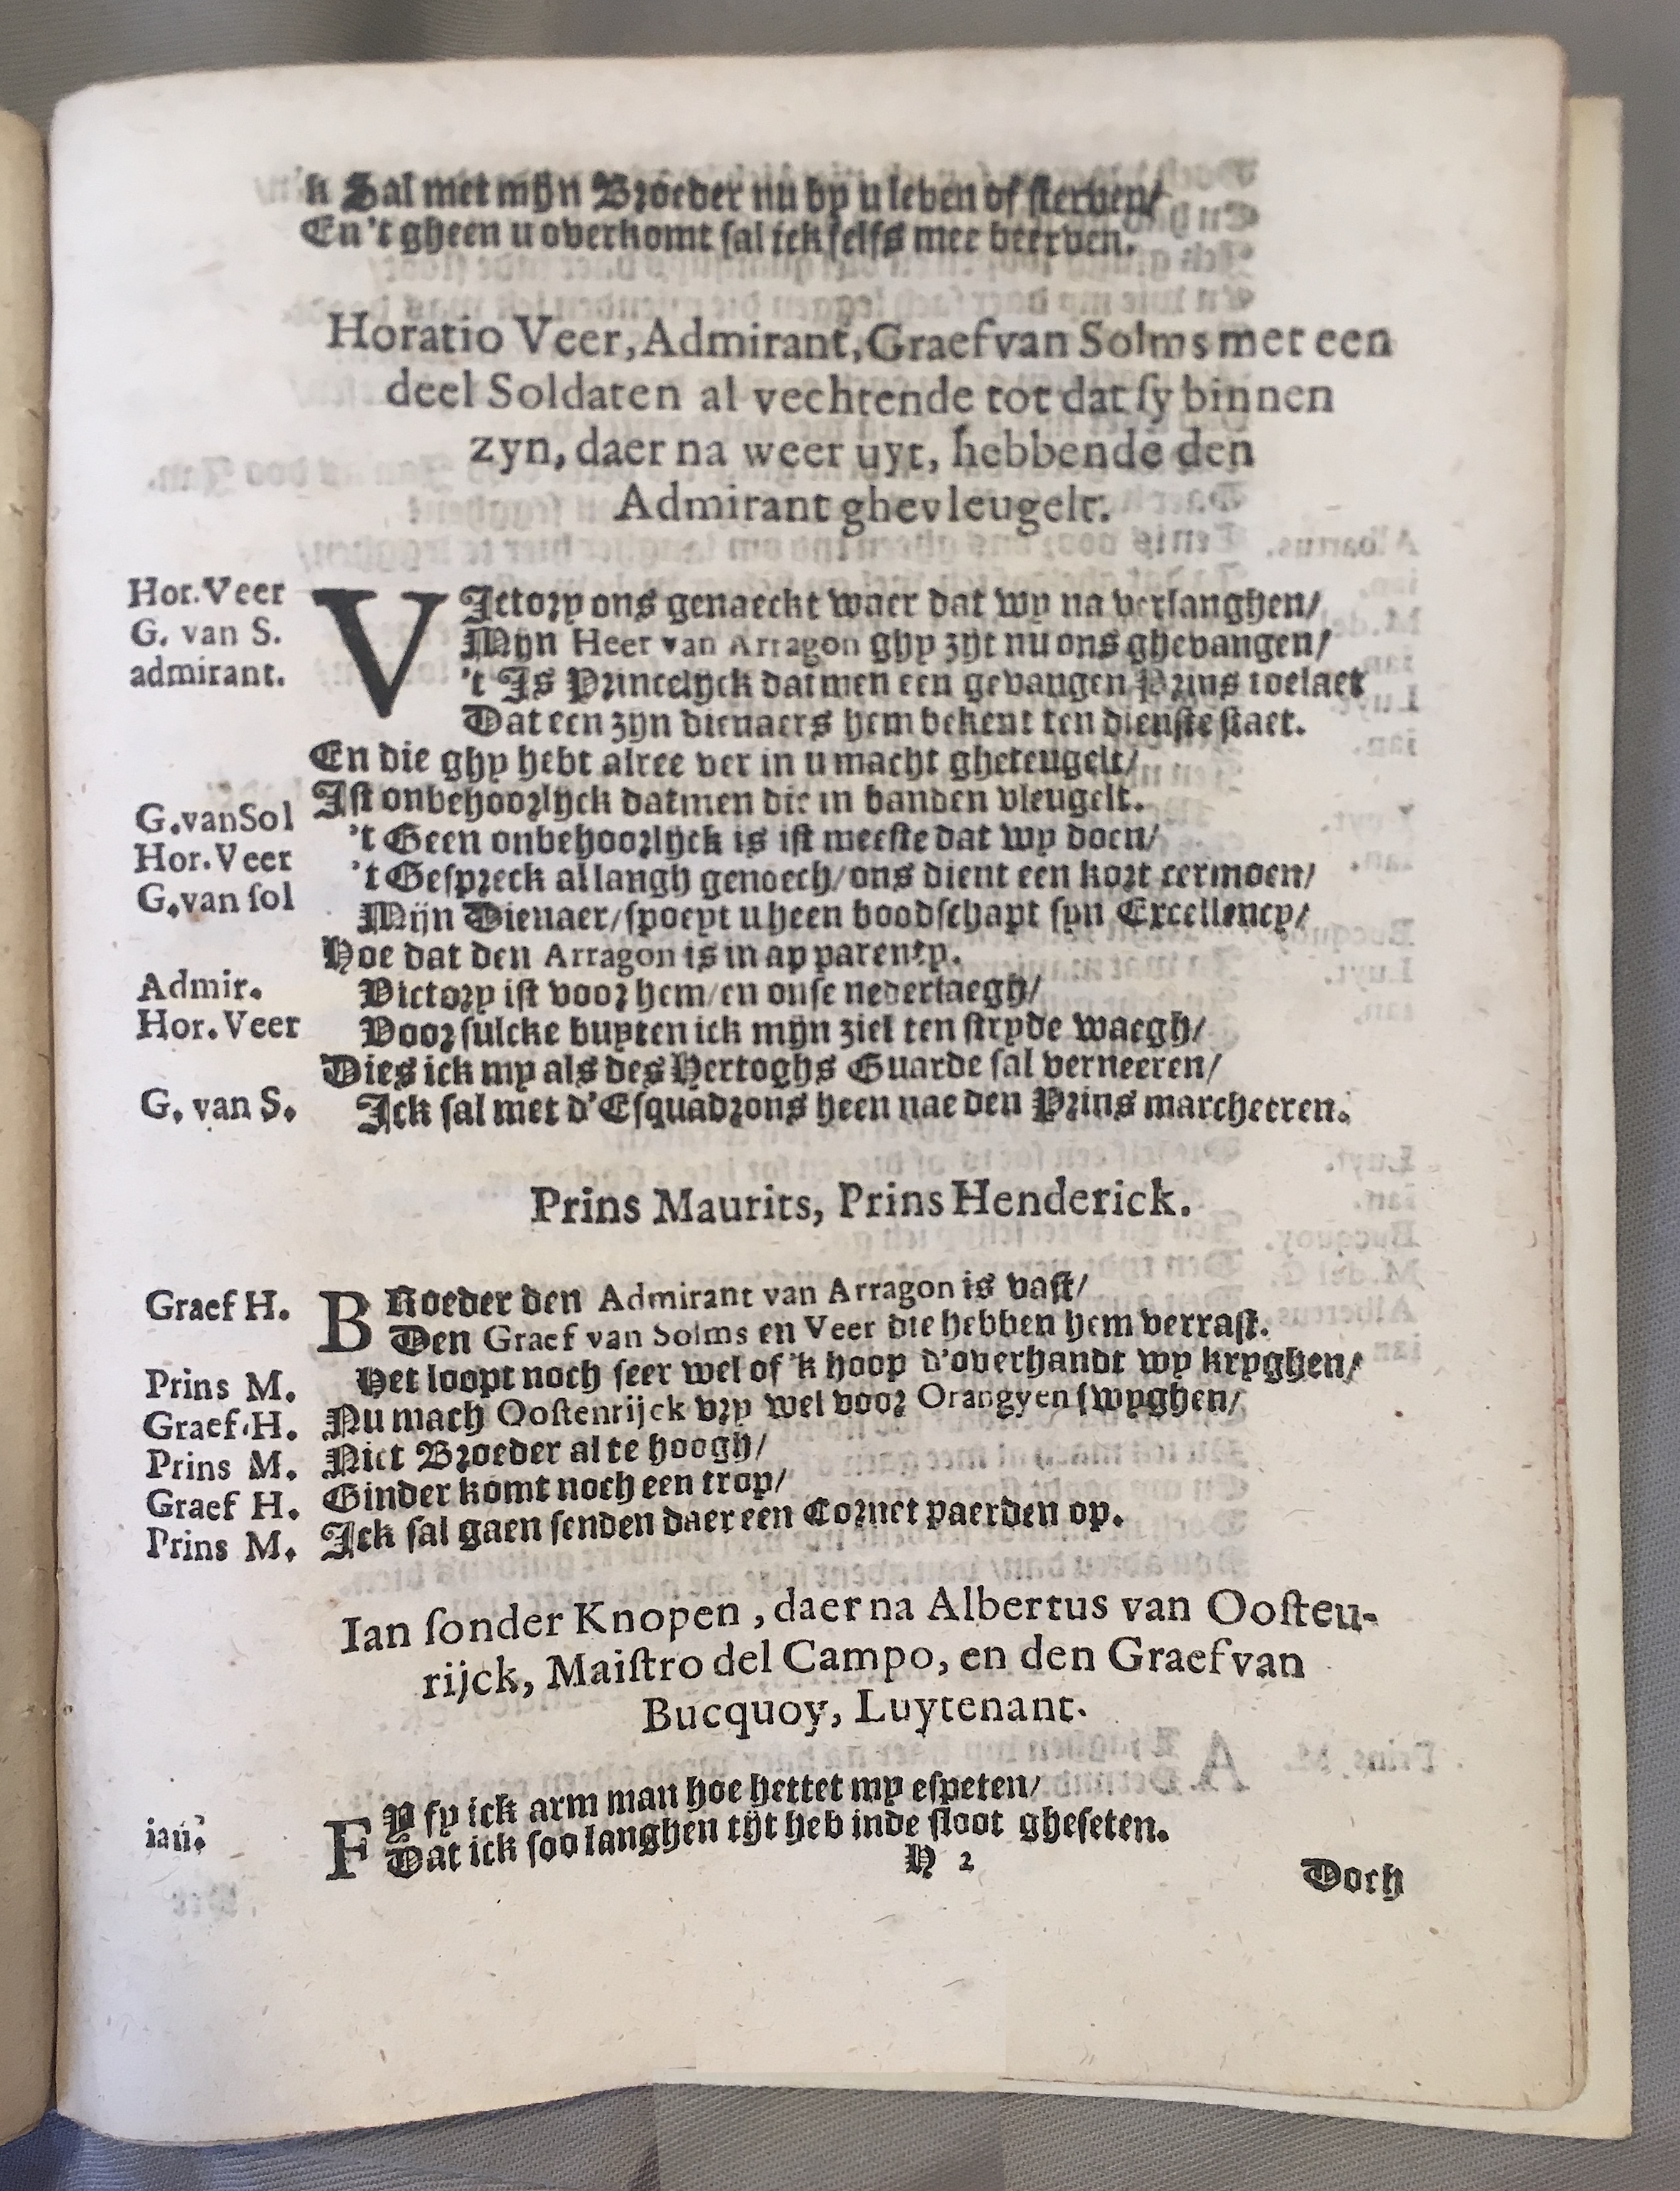 k Sal met mijn Broeder nu by u leven of sterven/
En 't gheen u overkomt sal ick selfs mee beerven.
Horatio Veer, Admirant, Graef van Solms met een
deel Soldaten al vechtende tot dat sy binnen
zyn, daer na weer uyt, hebbende den
Admirant ghevleugelt.
Hor. Veer VIctory ons genaeckt waer dat wy na verlanghen/
G. van S. Mijn Heer van Arragon ghy zijt nu ons ghevangen/
admirant. 't Is Princelijck datmen een gevangen Prins toelaet
Dat een zijn dienaers hem bekent ten dienste staet.
En die ghy hebt alree ver in u macht gheteugelt/
Ist onbehoorlijck datmen die in banden vleugelt.
G. van Sol 't Geen onbehoorlijck is ist meeste dat wy doen/
Hor. Veer 't Gespreck al langh genoech/ons dient een kort cermoen/
G. van sol Mijn Dienaer/spoeyt u heen boodschapt syn Excellency/
Hoe dat den Arragon is in apparenty.
Admir. Victory ist voor hem/en onse nederlaegh/
Hor. Veer Voor sulcke buyten ick mijn ziel ten stryde waegh/
Dies ick my als des Hertoghs Guarde sal verneeren/
G. van S. Ick sal met d'Esquadrons heen nae den Prins marcheeren.
Prins Maurits, Prins Henderick.
Graef H. BRoeder den Admirant van Arragon is vast/
Den Graef van Solms en Veer die hebben hem verrast.
Prins M. Het loopt noch seer wel of 'k hoop d'overhandt wy kryghen/
Graef H. Nu mach Oostenrijck vry wel voor Orangyen swyghen/
Prins M. Niet Broeder al te hoogh/
Graef H. Ginder komt noch een trop/
Prins M. Ick sal gaen senden daer een Cornet paerden op.
Ian sonder Knopen, daer na Albertus van Oosteu-
rijck, Maistro del Campo, en den Graef van
Bucquoy, Luytenant.
ian. FY fy ick arm man hoe hettet my espeten/
Dat ick soo langhen tijt heb inde sloot gheseten.
H 2
Doch